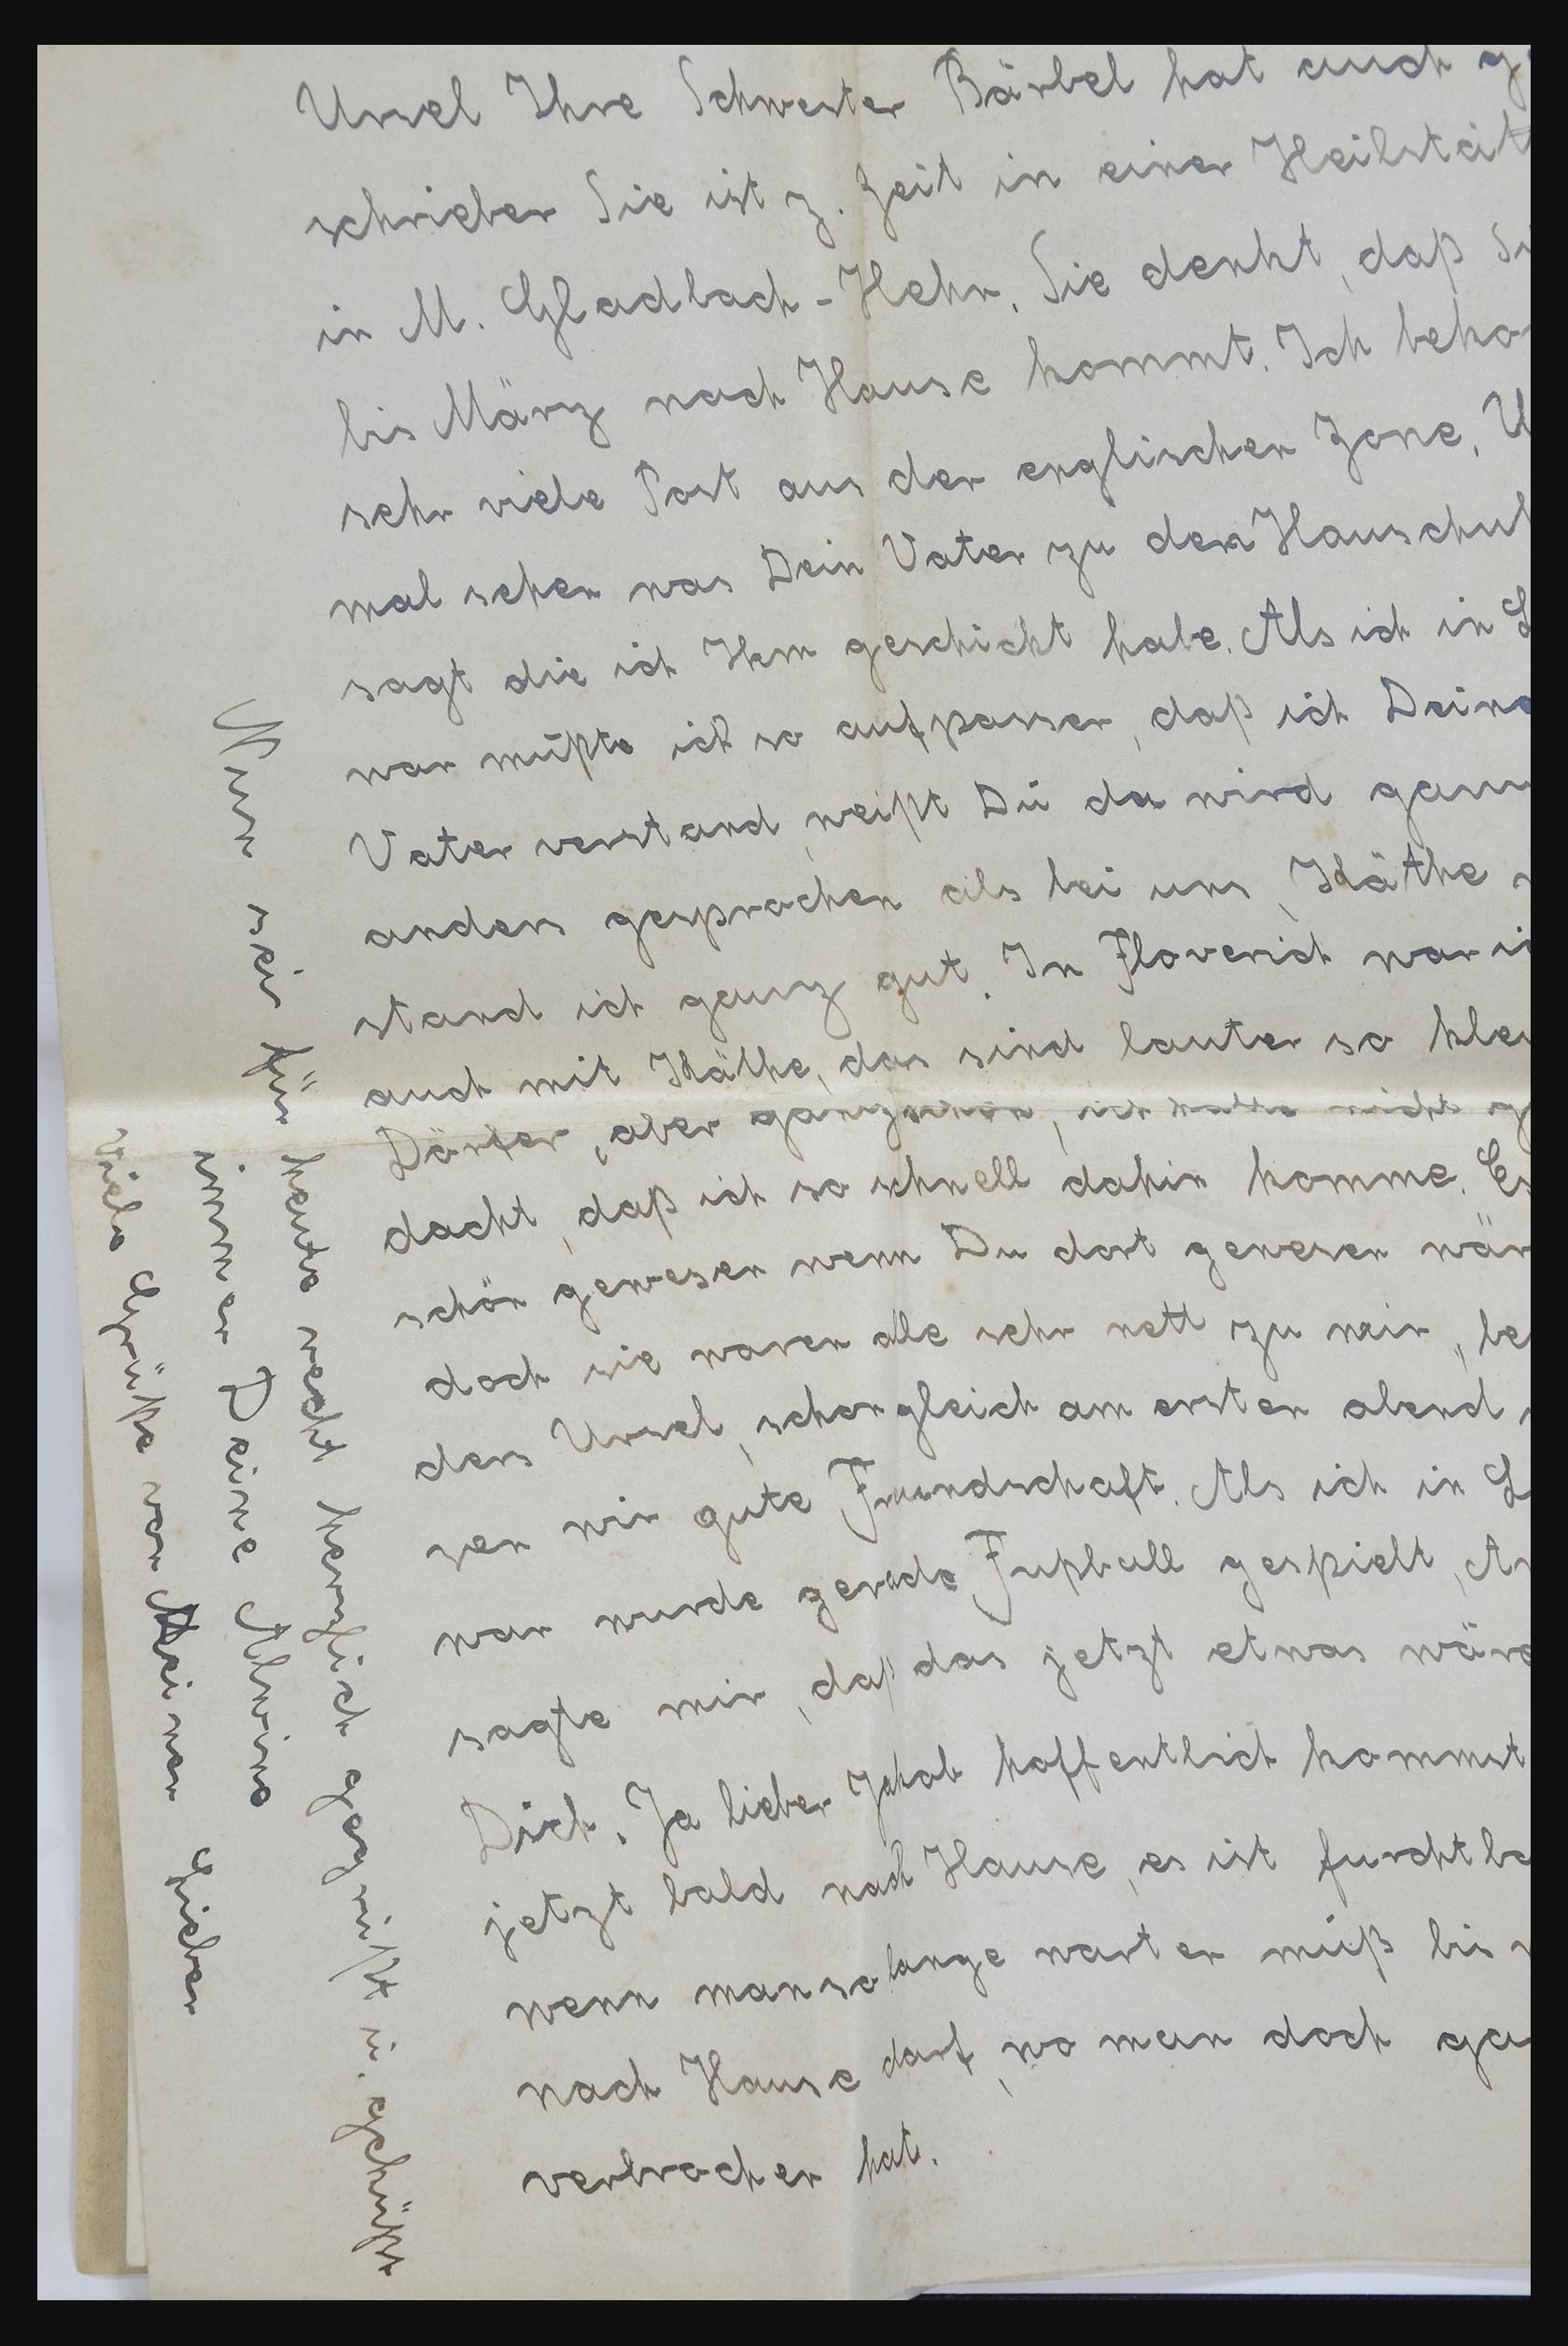 Ursel Ihre Schwester Bärbel hat auch g
schrieben Sie ist z. Zeit in einer Heilstätt
in M. Gladbach-Hehn. Sie denkt, daß Si
bis März nach Hause kommt. Ich beko
sehr viele Post aus der englischen Zone, U
mal sehen was Dein Vater zu den Hauschuh
sagt die ich Ihm geschickt habe. Als ich in L
war müßte ich so aufpassen, daß ich Deine
Vater verstand, weißt Dü da wird ganz
anders gesprochen als bei uns, Käthe
stand ich ganz gut. In Floverich war i
auch mit Käthe, das sind lauter so klei
Dörfer, aber ganz schön, ich hatte nicht g
dacht, daß ich so schnell dahin komme. Es
schön gewesen wenn Du dort gewesen wär
doch sie waren alle sehr nett zu mir, be
ders Ursel, schon gleich am ersten abend
sen wir gute Freundschaft. Als ich in L
war wurde gerade Fußball gespielt,
sagte mir, daß das jetzt etwas wäre
Dich. Ja lieber Jakob hoffentlich kommst
jetzt bald nach Hause, es ist furchtba
wenn man so lange warten müß bis
nach Hause darf, wo man doch ga
verbrochen hat.
Nun sei für heute recht herzlich gegrüßt u. geküßt
immer Deine Alwine
Viele Grüße von Meinen Lieben